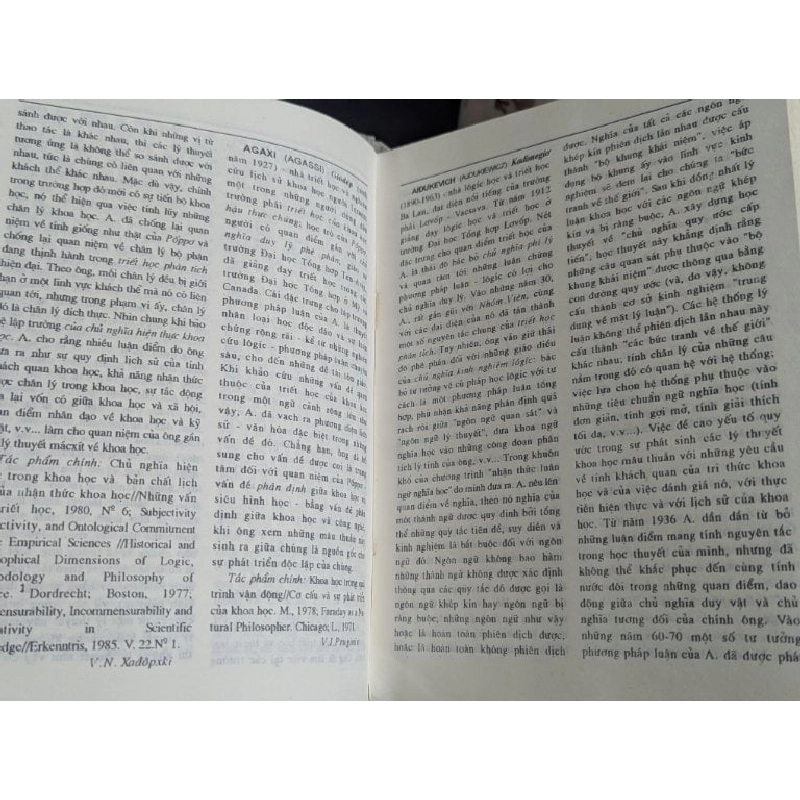 sánh được với nhau. Còn khi những vị từ
thao tác là khác nhau, thì các lý thuyết
tương ứng là không thể so sánh được với
nhau, tức là chúng có liên quan với những
khách thể khác nhau. Mặc dù vậy, chính
trong trường hợp đó mới có sự tiến bộ khoa
học, nó thể hiện qua việc tích lũy những
chân lý khoa học. A. đã chống lại quan
niệm về tính giống như thật của Pôppơ và
chống lại quan niệm về chân lý bộ phận
đang thịnh hành trong triết học phân tích
hiện đại. Theo ông, mỗi chân lý đều bị giới
hạn ở một lĩnh vực khách thể mà nó có liên
quan tới, nhưng trong phạm vi ấy, chân lý
đó là chân lý đích thực. Nhìn chung khi bảo
vệ lập trường của chủ nghĩa hiện thực khoa
học. A. cho rằng nhiều luận điểm do ông
đưa ra như sự quy định lịch sử của tính
khách quan khoa học, khả năng nhận thức
được chân lý trong khoa học, sự tác động
qua lại vốn có giữa khoa học và xã hội,
quan điểm nhân đạo về khoa học và kỹ
thuật, v.v... làm cho quan niệm của ông gần
lý thuyết mácxít về khoa học.
Tác phẩm chính: Chủ nghĩa hiện
trong khoa học và bản chất lịch
của nhận thức khoa học//Những vấn
triết học, 1980, Nº 6; Subjectivity
and Ontological Commitment
Empirical Sciences //Historical and
Dimensions of Logic,
and Philosophy of
Dordrecht; Boston, 1977;
Incommensurability and
in Scientific
1985. V. 22.Nº 1.
V.N. Xađôpxki
AGAXI (AGASSI)
năm 1927) - nhà triết học và
cứu lịch sử khoa học người
một trong những người
trường phái triết học
hậu thực chứng; học trò của
người có quan điểm gần với
nghĩa duy lý phê phán,
đã giảng dạy triết học trong
trường Đại học Tổng hợp
Canada. Cái đặc trưng cho lập trường
phương pháp luận của A. là thuyết
nhân loại học độc đáo và sự
chứng rộng rãi - kể từ những nghiên
cứu lôgic - phương pháp luận chuyên
sâu, cho đến những đề tài
Khi khảo cứu những vấn đề quy
thuộc của triết học của khoa học
trong một ngữ cảnh rộng lớn như
vậy, A. đã vạch ra phương diện lịch
sử - văn hóa đặc biệt trong những
vấn đề đó. Chẳng hạn, ông đã bổ
sung cho vấn đề được coi là trung
tâm đối với quan niệm của Pôppơ -
vấn đề phân định giữa khoa học và
siêu hình học - bằng vấn đề phân
định giữa khoa học và công nghệ,
khi ông xem những mâu thuẫn nảy
sinh ra giữa chúng là nguồn gốc cho
sự phát triển độc lập của chúng.
Tác phẩm chính: Khoa học trong quá
trình vận động//Cơ cấu và sự phát triển
của khoa học. M., 1978; Faraday as a Na-
tural Philosopher. Chicago; L., 1971.
AIĐUKEVICH (AJDUKEWICZ) Kadimegiơ
(1890-1963) - nhà lôgic học và triết học
Ba Lan, đại diện nổi tiếng của trường
phái Lơvốp - Vacsava. Từ năm 1912
giảng dạy lôgic học và triết học ở
trường Đại học Tổng hợp Lơvốp. Nét
đặc trưng cho quan điểm triết học của
A. là thái độ bác bỏ chủ nghĩa phi lý
và quan tâm tới những luận chứng
phương pháp luận - lôgic có lợi cho
chủ nghĩa duy lý. Vào những năm 30,
A. rất gần gũi với Nhóm Viên, cùng
với các đại diện của nó đã tán thành
một số nguyên tắc chung của triết học
phân tích. Tuy nhiên, ông vẫn giữ thái
độ phê phán đối với những giáo điều
của chủ nghĩa kinh nghiệm lôgic: bác
bỏ tư tưởng về cú pháp học lôgic với tư
cách là một phương pháp luận tổng
hợp, phủ nhận khả năng phân định quá
rạch ròi giữa "ngôn ngữ quan sát" và
"ngôn ngữ lý thuyết", đưa khoa ngữ
nghĩa học vào những công đoạn phân
tích lý tính của ông, v.v... Trong khuôn
khổ của chương trình "nhận thức luận
ngữ nghĩa học" do mình đưa ra. A. nêu lên
quan điểm về nghĩa, theo nó nghĩa của
một thành ngữ được quy định bởi tổng
thể những quy tắc tiên đề, suy diễn và
kinh nghiệm là bắt buộc đối với ngôn
ngữ đó. Ngôn ngữ không bao hàm
những thành ngữ không được xác định
thông qua các quy tắc đó được gọi là
ngôn ngữ khép kín hay ngôn ngữ bị
ràng buộc, những ngôn ngữ như vậy
hoặc là hoàn toàn phiên dịch được,
hoặc là hoàn toàn không phiên dịch
được. Nghĩa của tất cả các ngôn ngữ
khép kín phiên dịch lẫn nhau được cấu
thành "bộ khung khái niệm", việc áp
dụng bộ khung ấy vào lĩnh vực kinh
nghiệm sẽ đem lại cho chúng ta "bức
tranh về thế giới". Sau khi đồng nhất lý
luận khoa học với các ngôn ngữ khép
kín và bị ràng buộc, A. xây dựng học
thuyết về "chủ nghĩa quy ước cấp
tiến", học thuyết này khẳng định rằng
những câu quan sát phụ thuộc vào "bộ
khung khái niệm" được thông qua bằng
con đường quy ước (và, do vậy, không
cấu thành cơ sở kinh nghiệm "trung
dung về mặt lý luận"). Các hệ thống lý
luận không thể phiên dịch lẫn nhau này
cấu thành "các bức tranh về thế giới"
khác nhau; tính chân lý của những câu
nằm trong đó có quan hệ với hệ thống;
việc lựa chọn hệ thống phụ thuộc vào
những tiêu chuẩn ngữ nghĩa học (tính
đơn giản, tính gợi mở, tính giải thích
tối đa, v.v...). Việc đề cao yếu tố quy
ước trong sự phát sinh các lý thuyết
khoa học mâu thuẫn với những yêu cầu
về tính khách quan của tri thức khoa
học và của việc đánh giá nó, với thực
tiễn hiện thực và với lịch sử của khoa
học. Từ năm 1936 A. dần dần từ bỏ
những luận điểm mang tính nguyên tắc
trong học thuyết của mình, nhưng đã
không thể khắc phục đến cùng tính
nước đôi trong những quan điểm, dao
động giữa chủ nghĩa duy vật và chủ
nghĩa tương đối của chính ông. Vào
những năm 60-70 một số tư tưởng
phương pháp luận của A. đã được phát